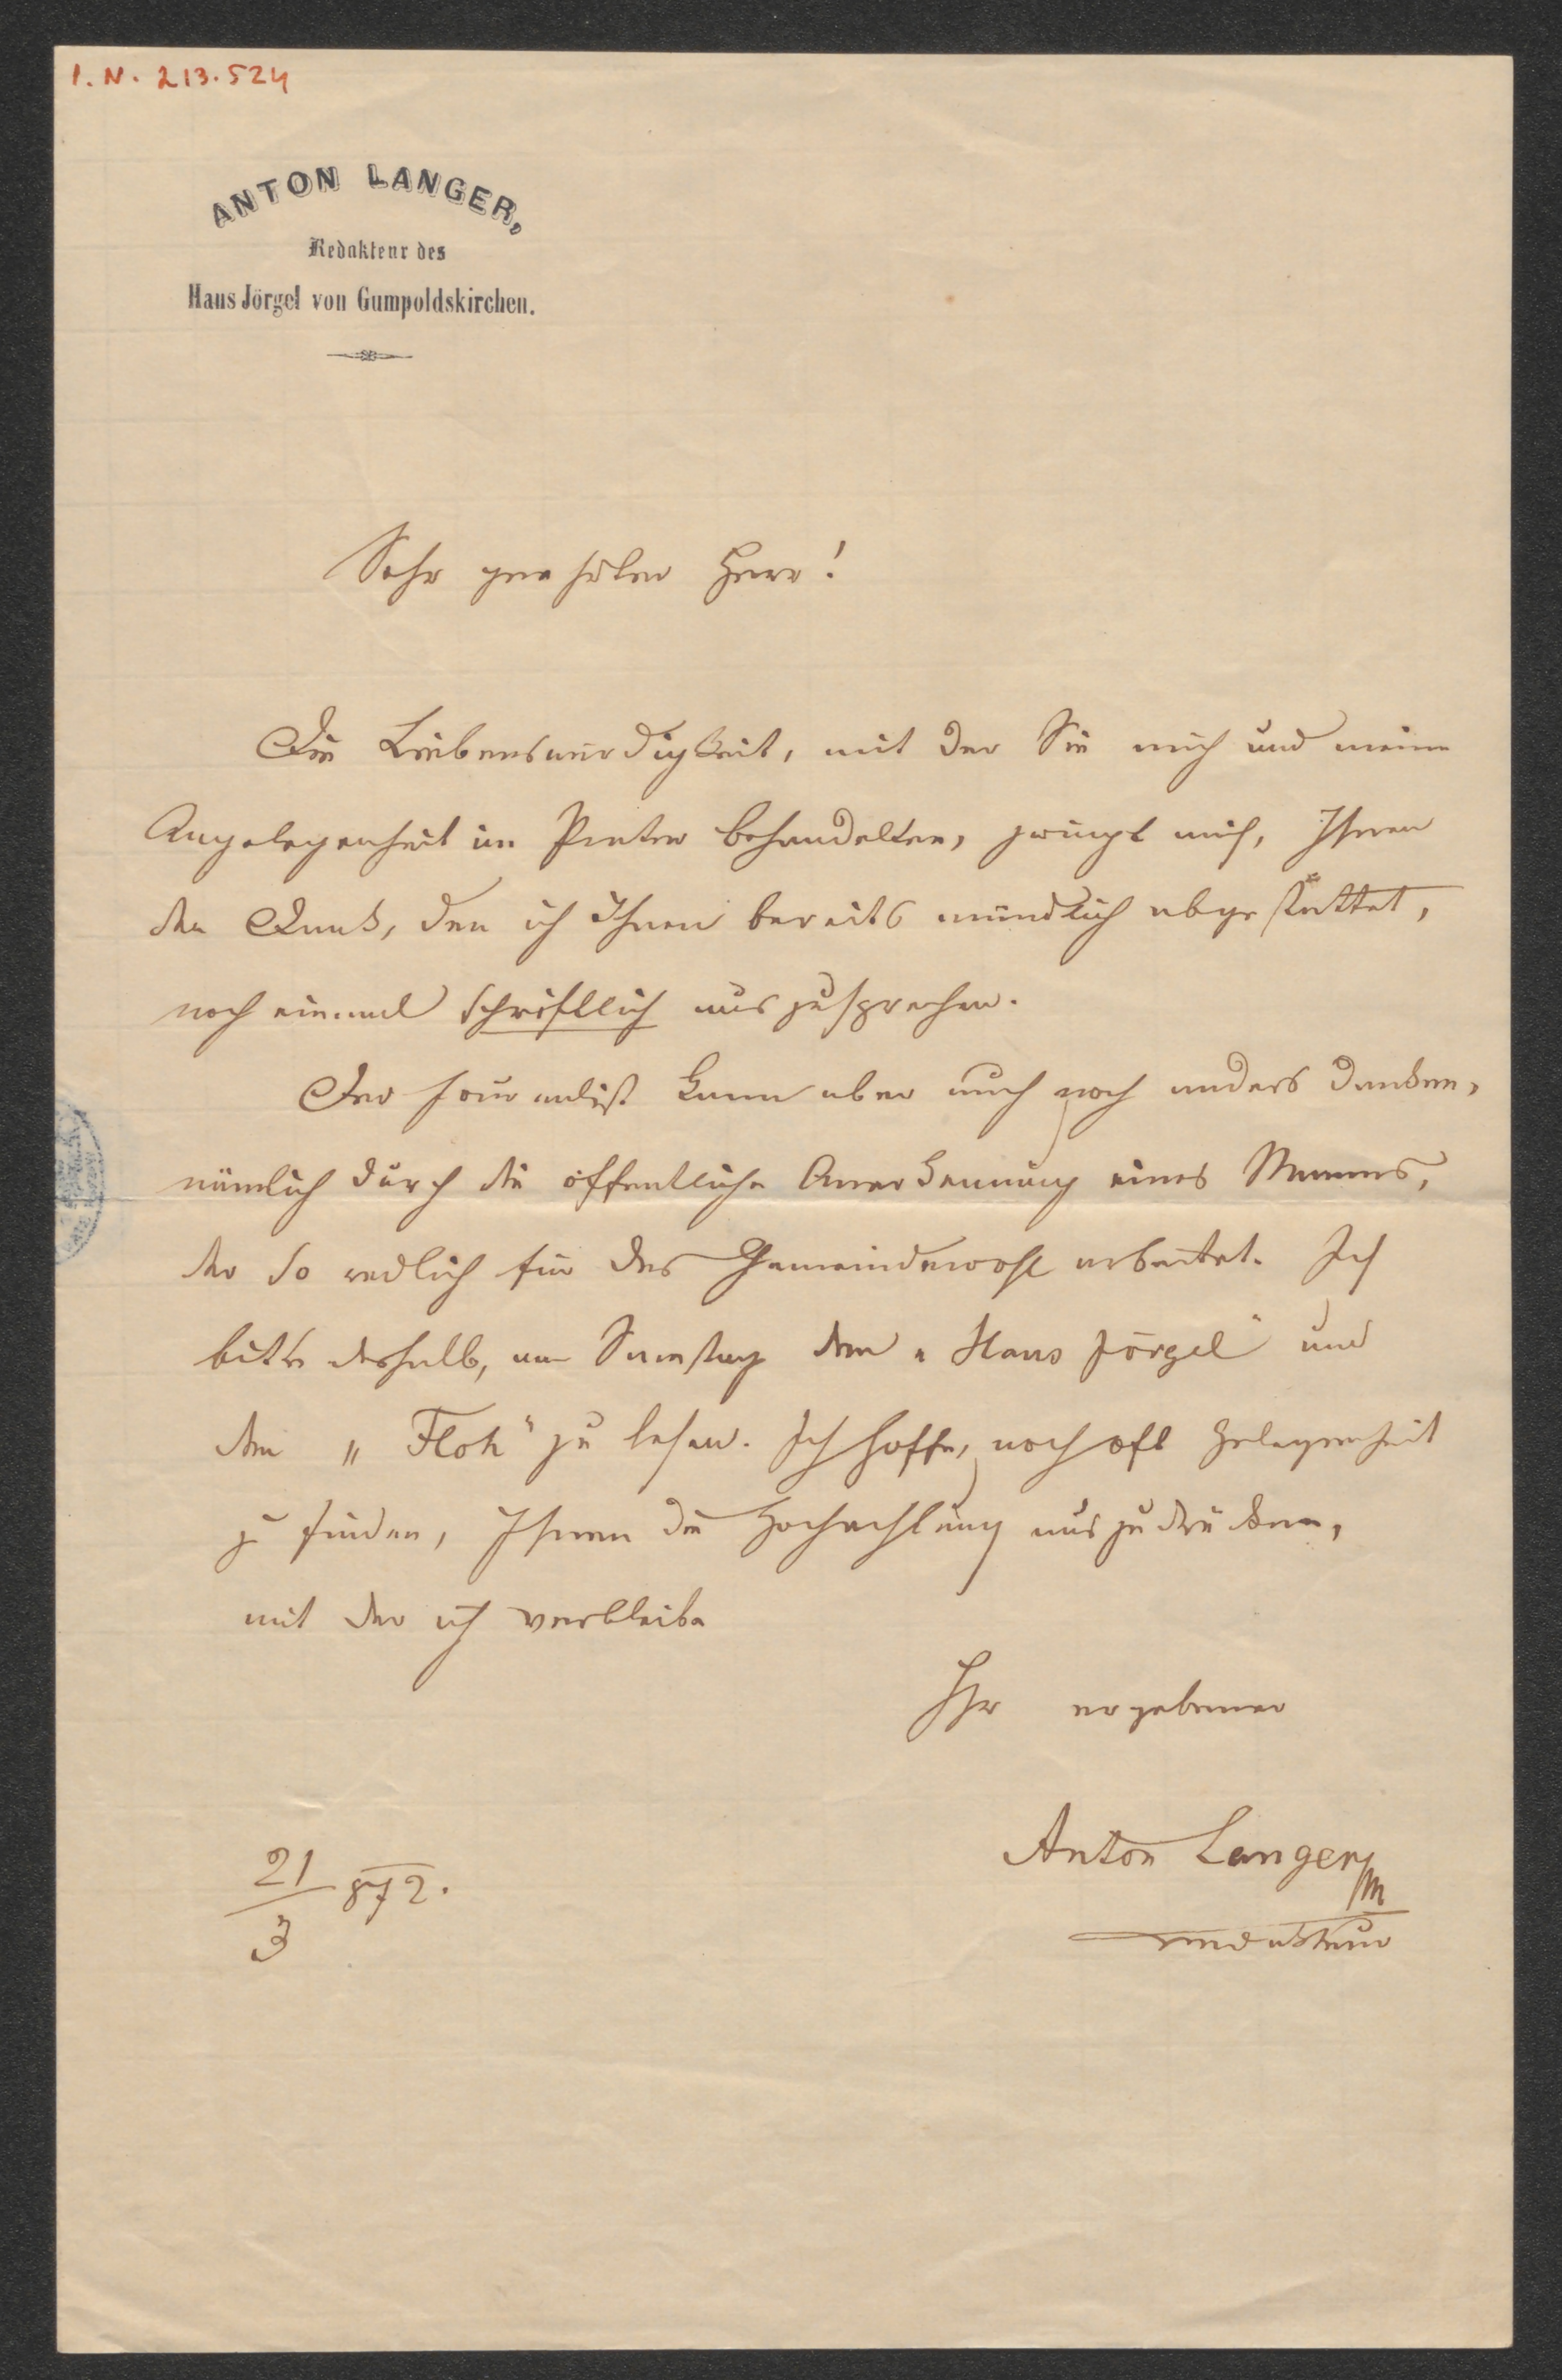 I. N. 213.524
ANTON LANGER,
Redakteur des
Hans Jörgel von Gumpoldskirchen.
Sehr geehrter Herr!
Die Liebenswürdigkeit, mit der Sie mich und meine
Angelegenheit im Prater behandelten, zwingt mich, Ihnen
den Dank, den ich Ihnen bereits mündlich abgestattet,
noch einmal schriftlich auszusprechen.
Der Journalist kann aber auch noch anders danken,
nämlich durch die öffentliche Anerkennung eines Mannes,
der so redlich für das Gemeindewohl arbeitet. Ich
bitte deshalb, am Samstag den „Hans Jörgel" und
den „Floh" zu lesen. Ich hoffe, noch oft Gelegenheit
zu finden, Ihnen die Hochachtung auszudrücken,
mit der ich verbleibe
Ihr ergebener
Anton Langer
Redakteur
21/3 872.